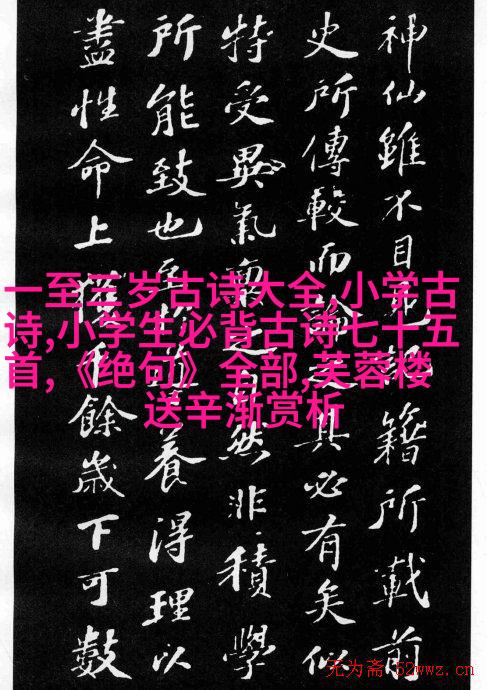 神仙雖不目見記籍所載前
史所傳較而論之其必有矣似
特受異氣稟之自然非積學
所能致也至於導養得理以
盡性命上獲千餘歲下可數
一至三岁古诗大全,小学古
诗,小学生必背古诗七十五
首,《绝句》全部,芙蓉楼
送辛渐赏析
无为斋·52wwz.cn